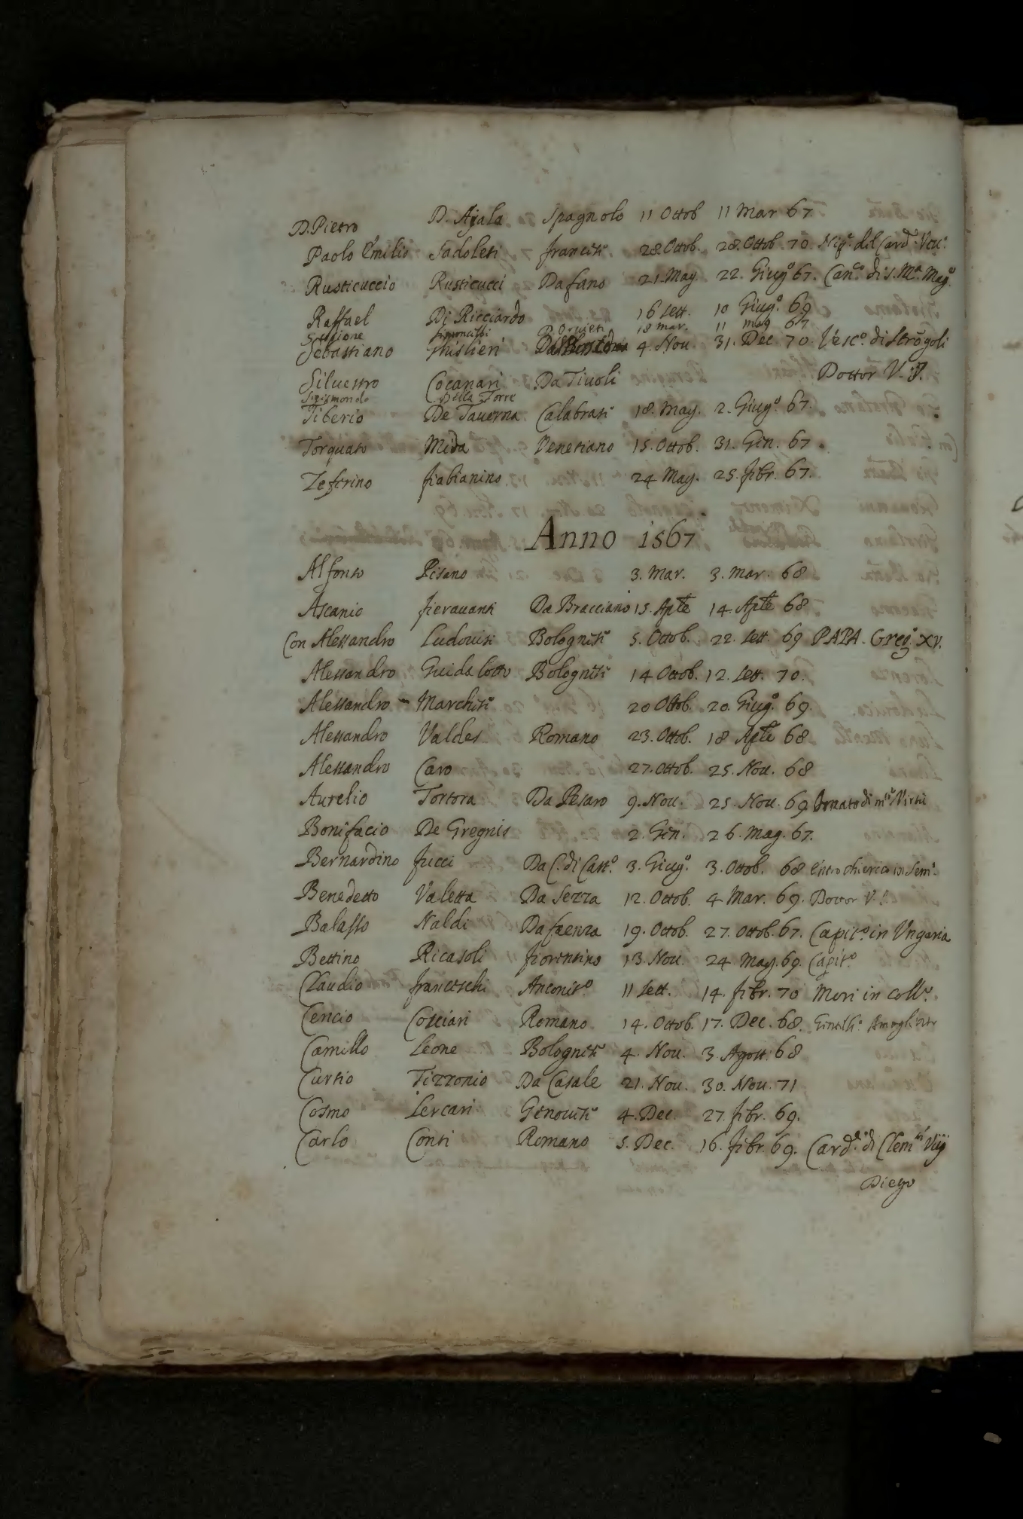 D. Pietro D. Ajala Spagnolo 11 Ottob 11 Mar 67
Paolo Emilio Sadoleti francese 28 Ottob. 28. Ottob. 70 Nip. del Card. Vesc.
Rusticuccio Rusticucci Da fano 21. May 22. Giugo 67. Cano. di S. Ma. Mago.
Raffael Di Ricciardo 16 Sett. 10 Giugo. 69
Scipione Simoncelli D'Orvieti 18 mar. 11 mag 67
Sebastiano Ghislieri 4 Nov. 31. Dec 70 Vesco. di Strõgoli
Silvestro Cocanari Da Tivoli Dottor V. J.
Sigismondo Della Torre
Tiberio De Taverna Calabrese 18. May. 2. Giugo. 67.
Torquato Meda Venetiano 15. Ottob. 31. Gen. 67
Zefirino fiabianino 24 May. 25. febr. 67.
Anno 1567
Alfonso Pisano 3. Mar. 3. Mar. 68
Ascanio fieravanti Da Bracciano 15. Aple 14. Aple 68
Con Alessandro Ludovisi Bolognese 5. Ottob. 22. Sett 69 PAPA. Greg. XV.
Alessandro Guidalotto Bolognese 14 Ottob. 12. Sett. 70.
Alessandro Marchese 20 Ottob. 20. Giugo. 69.
Alessandro Valdes Romano 23. Ottob. 18 Aple 68
Alessandro Caro 27. Ottob. 25. Nov. 68
Aurelio Tortora Da Pesaro 9. Nov. 25 Nov. 69 Ornato di me. Virtù
Bonifacio De Gregnis 2 Gen. 26. Mag. 67.
Bernardino fucci Da C. di Casto. 3. Giugo. 3. Ottob. 68 Entrò chierico in Semo.
Benedetto Valetta Da Sezza 12. Ottob. 4 Mar. 69. Dottor V.J.
Balasso Naldi Da faenza 19. Ottob. 27. Ottob. 67. Capito. in Ungaria
Bettino Ricasoli fiorentino 13. Nov. 24 May. 69. Capito.
Claudio franceschi Anconito 11 Sett. 14. febr. 70 Morì in collo.
Cencio Cosciari Romano. 14. Ottob. 17. Dec. 68.
Camillo Leone Bolognese 4. Nov. 3 Agost. 68
Curtio Tizzonio Da Casale 21. Nov. 30. Nov. 71
Cosmo Lercari Genovese 4. Dec. 27 febr. 69.
Carlo Conti Romano 5. Dec. 16. febr. 69. Carde. di Clemte. Viij
Diego